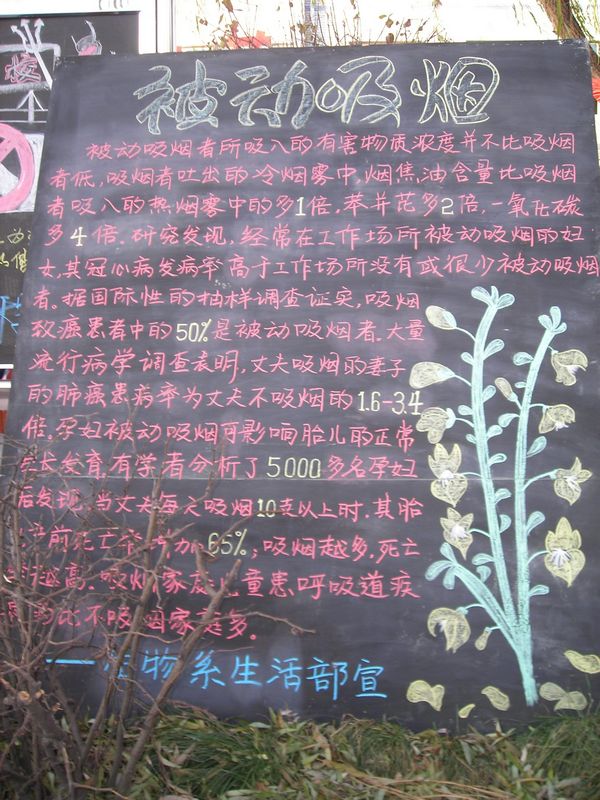 被动吸烟
被动吸烟者所吸入的有害物质浓度并不比吸烟
者低,吸烟者吐出的冷烟雾中,烟焦油含量比吸烟
者吸入的热烟雾中的多1倍,苯并芘多2倍,一氧化碳
多4倍.研究发现,经常在工作场所被动吸烟的妇
女,其冠心病发病率高于工作场所没有或很少被动吸烟
者.据国际性的抽样调查证实,吸烟
致癌患者中的50%是被动吸烟者.大量
流行病学调查表明,丈夫吸烟的妻子
的肺癌患病率为丈夫不吸烟的1.6-3.4
倍.孕妇被动吸烟可影响胎儿的正常
生长发育.有学者分析了5000多名孕妇
后发现,当丈夫每天吸烟10支以上时,其胎
前死亡率 加65%;吸烟越多,死亡
越高,吸烟家庭儿童患呼吸道疾
比不吸烟家庭多。
——物系生活部宣